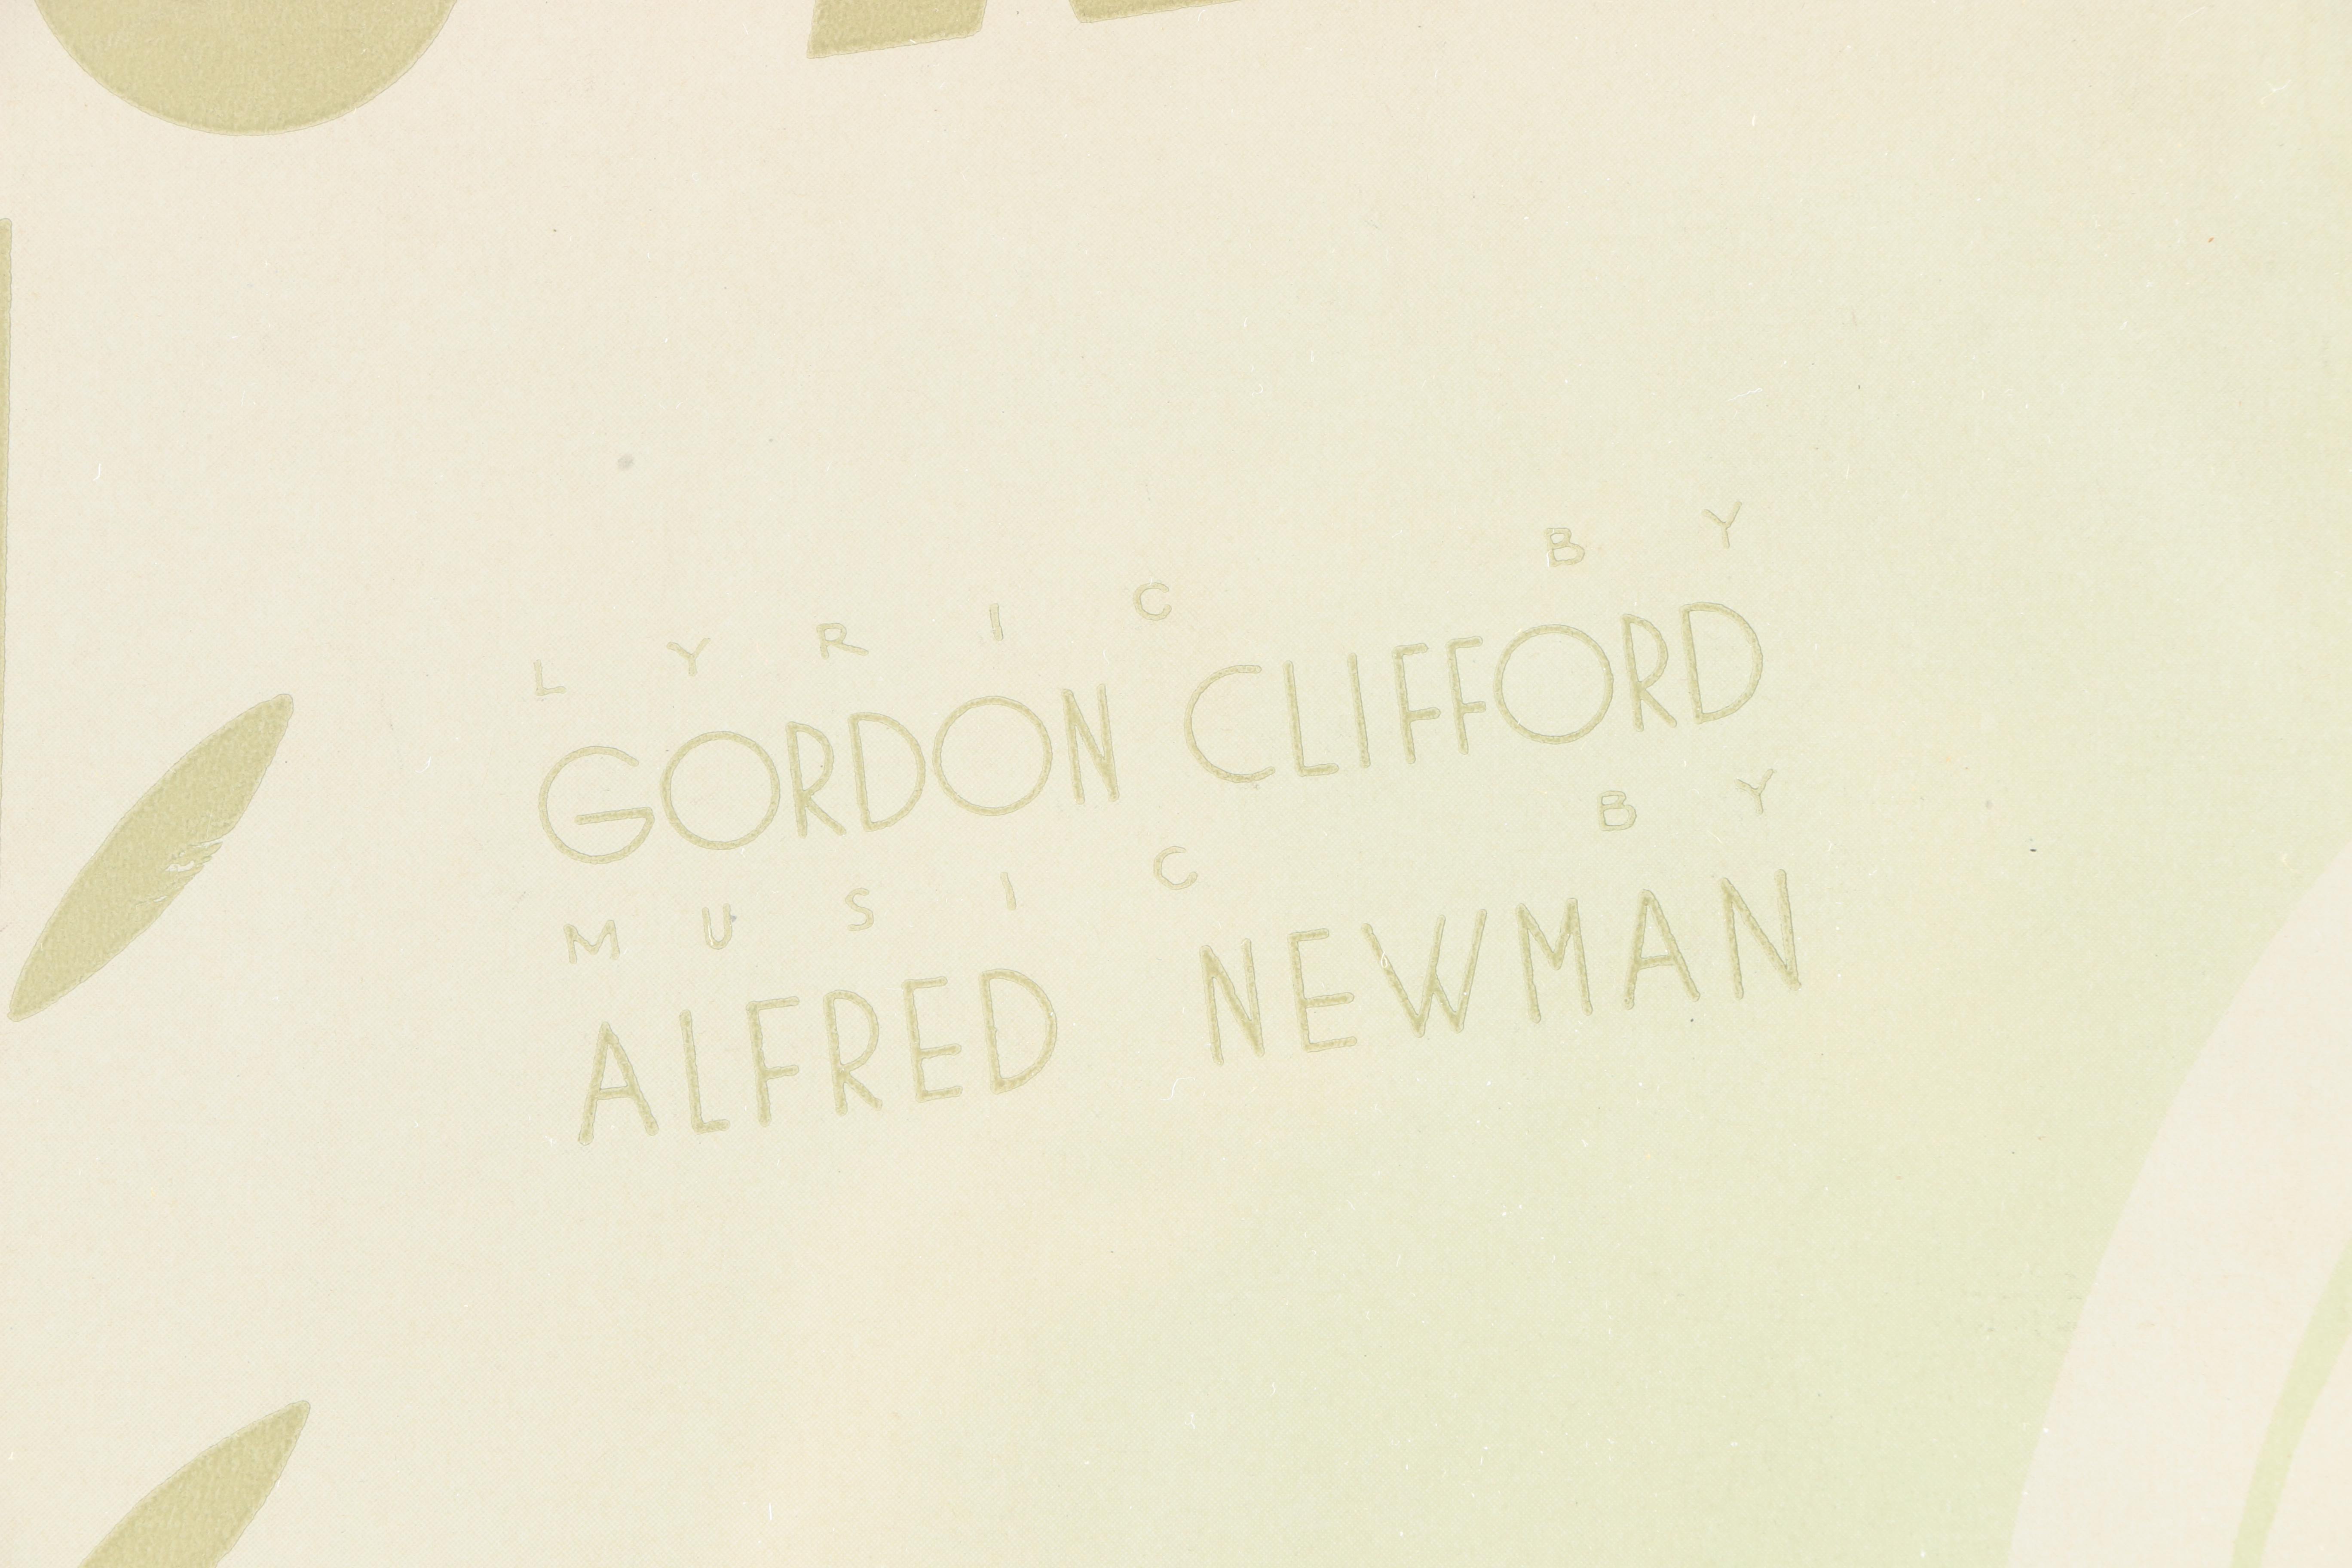 LYRIC BY
GORDON CLIFFORD
MUSIC BY
ALFRED NEWMAN